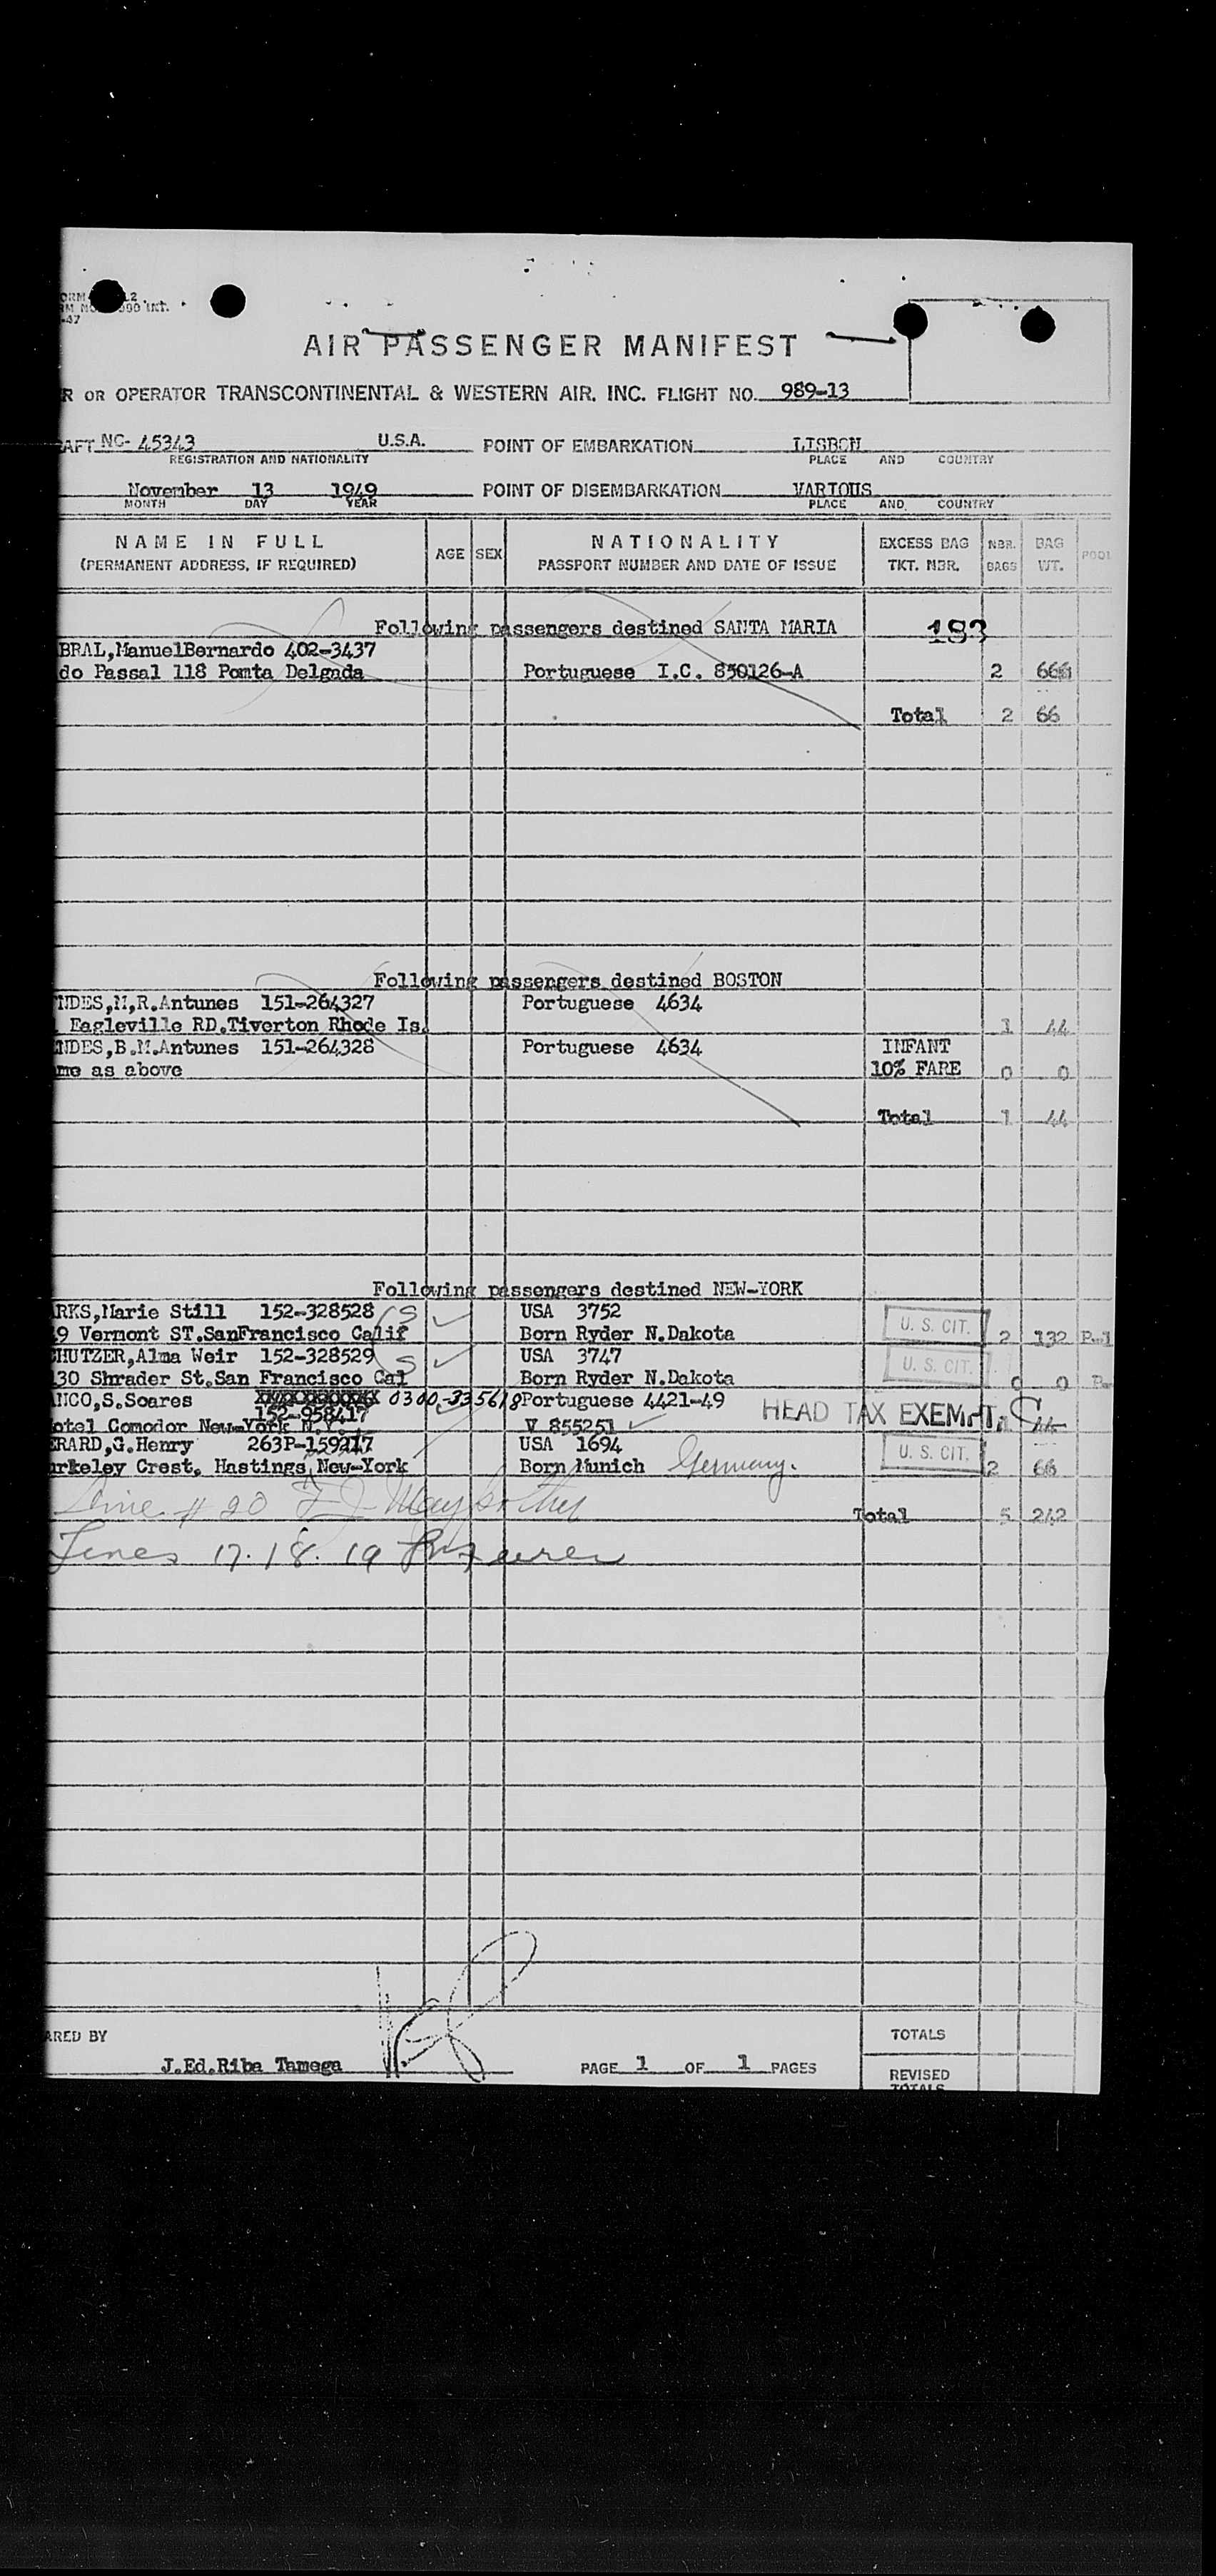 AIR PASSENGER MANIFEST
R OR OPERATOR TRANSCONTINENTAL & WESTERN AIR. INC. FLIGHT NO. 989-13
AFT NC- 45343 U.S.A. POINT OF EMBARKATION LISBON
REGISTRATION AND NATIONALITY PLACE AND COUNTRY
November 13 1949 POINT OF DISEMBARKATION VARIOUS
MONTH DAY YEAR PLACE AND COUNTRY
NAME IN FULL AGE SEX NATIONALITY EXCESS BAG NBR. BAG POOL
(PERMANENT ADDRESS, IF REQUIRED) PASSPORT NUMBER AND DATE OF ISSUE TKT. NBR. BAGS WT.
Following passengers destined SANTA MARIA 183
BRAL,ManuelBernardo 402-3437
do Passal 118 Pomta Delgada Portuguese I.C. 850126-A 2 66
Total 2 66
Following passengers destined BOSTON
NDES,M,R.Antunes 151-264327 Portuguese 4634
Eagleville RD.Tiverton Rhode Is. 1 44
NDES,B.M.Antunes 151-264328 Portuguese 4634 INFANT
me as above 10% FARE 0 0
Total 1 44
Following passengers destined NEW-YORK
RKS,Marie Still 152-328528 S USA 3752 U. S. CIT.
9 Vermont ST.SanFrancisco Calif Born Ryder N.Dakota 2 132
HUTZER,Alma Weir 152-328529 S USA 3747 U. S. CIT.
30 Shrader St.San Francisco Cal Born Ryder N.Dakota 0 0
NCO,S.Soares 0300-335618 Portuguese 4421-49 HEAD TAX EXEMPT
152-958417
otel Comodor New-York N.Y. V 855251 1 44
ERARD,G.Henry 263P-159217 USA 1694 U. S. CIT.
rkeley Crest. Hastings New-York Born Munich Germany. 2 66
Line # 20 Total 5 242
Lines 17. 18. 19
ARED BY TOTALS
J.Ed.Riba Tamega PAGE 1 OF 1 PAGES
REVISED
TOTALS